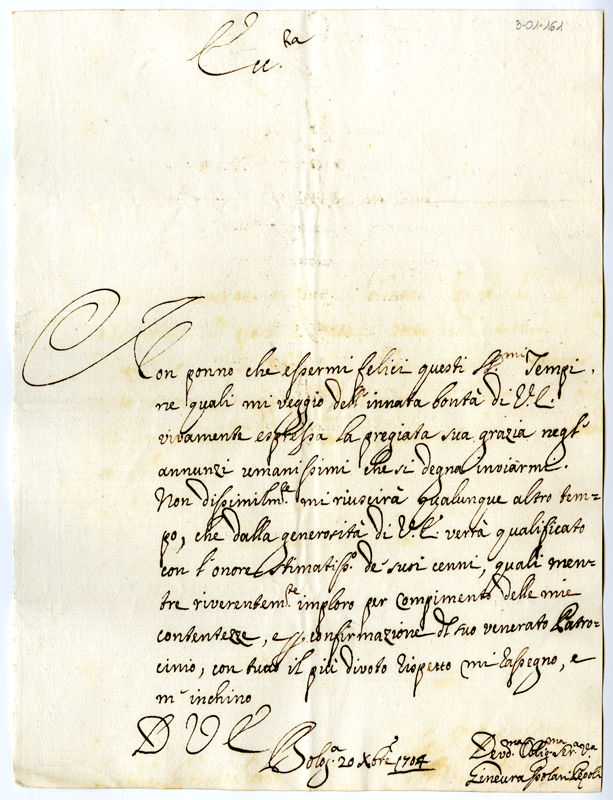 3-01-161
Ecc.za
Non ponno che essermi felici questi SS.mi Tempi,
ne quali mi veggio dell'innata bontà di V.E.
vivamente espressa la pregiata sua grazia negl'
annunzi umanissimi che si degna inviarmi.
Non dissimilm.te mi riuscirà qualunque altro tem=
po, che dalla generosità di V.E. verrà qualificato
con l'onore stimatiss.o de suoi cenni, quali men=
tre riverentem.te imploro per compimento delle mie
contentezze, e p. confirmazione del suo venerato Patro=
cinio, con tutto il più divoto rispetto mi rassegno, e
m'inchino
D V E
Bolog.a 20 Xbre 1704
Devd.ma Oblig.ma Ser.a Vra
Gineura Pepoli